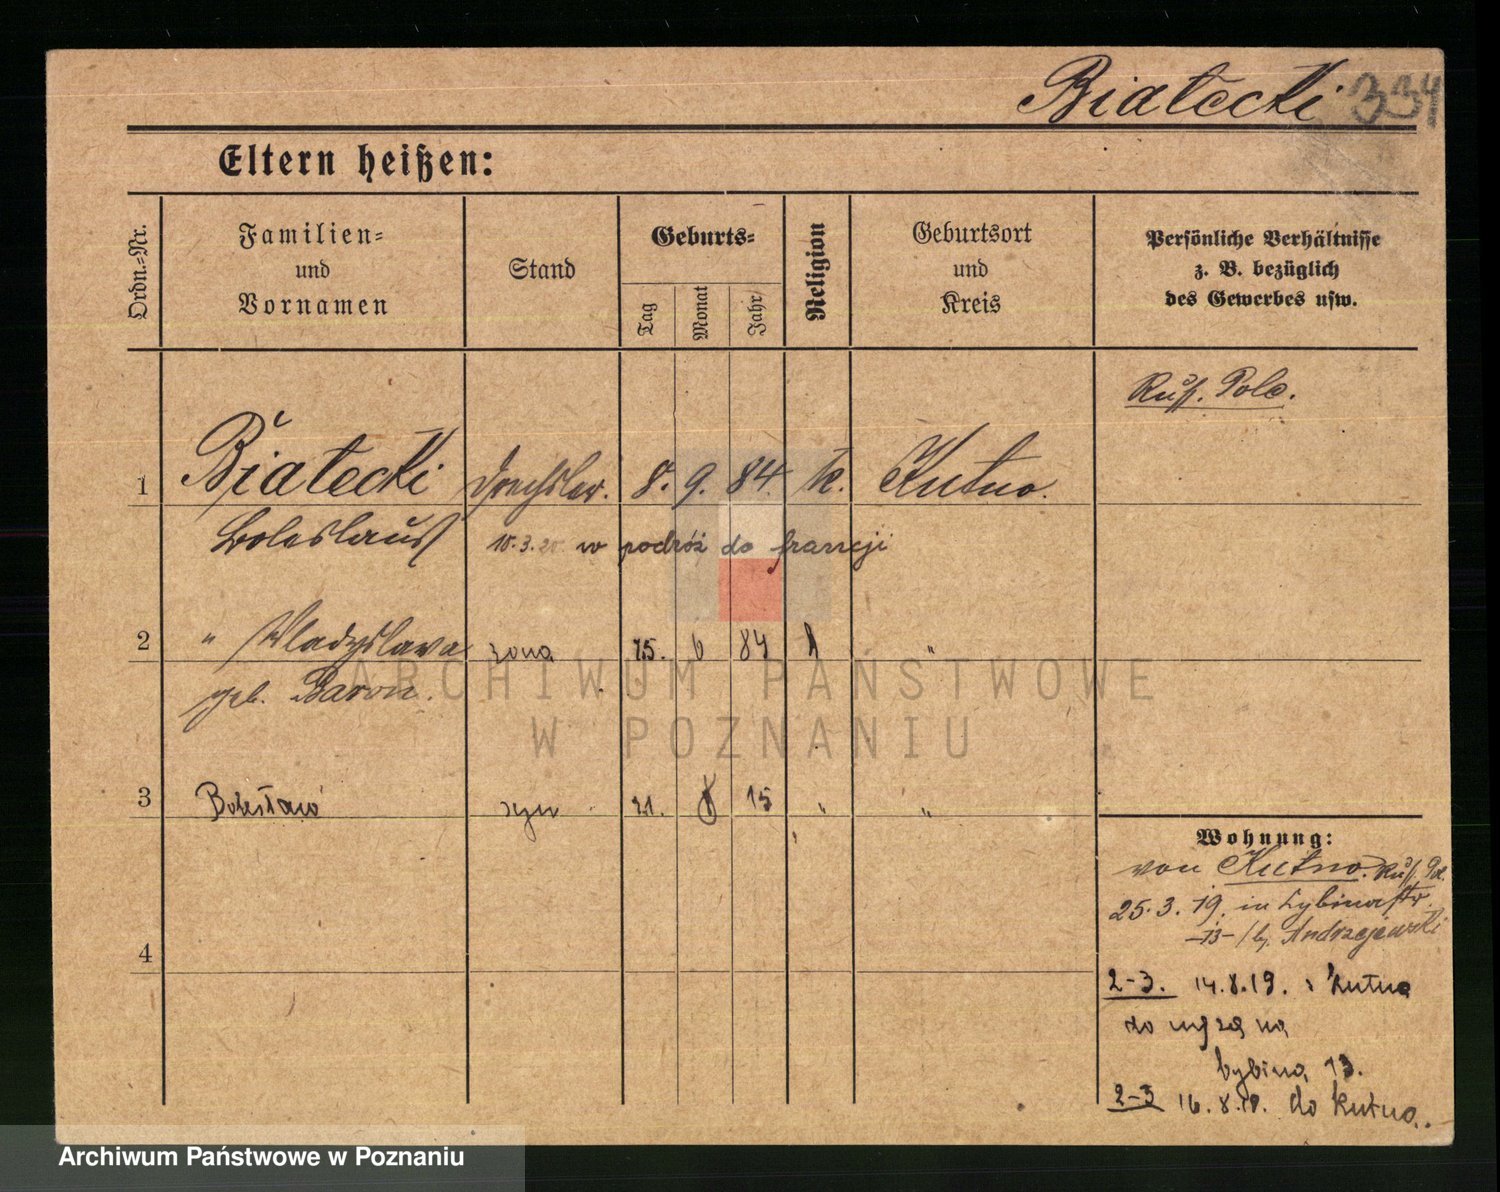 Białecki 334
Eltern heißen:
Ordn.=Nr.
Familien=
und
Vornamen
Stand
Geburts=
Tag
Monat
Jahr
Religion
Geburtsort
und
Kreis
Persönliche Verhältnisse
z. B. bezüglich
des Gewerbes usw.
Russ. Pole.
1 Białecki Drechsler. 8. 9. 84. k. Kutno.
Boleslaus
10.3.20 w podróż do francji
2 " Wladyslawa żona 25. 6 84 k "
geb. Baron.
3 Bolesław syn 21. 8 15 " "
4
Wohnung:
von Kutno. Russ. Pol.
25.3.19. in Lybinastr.
-13- / bj. Andrzejewski
2-3. 14.8.19. z Kutna
do męża na
Lybina 13.
2-3 16.8.19. do Kutna.
ARCHIWUM PAŃSTWOWE
W POZNANIU
Archiwum Państwowe w Poznaniu